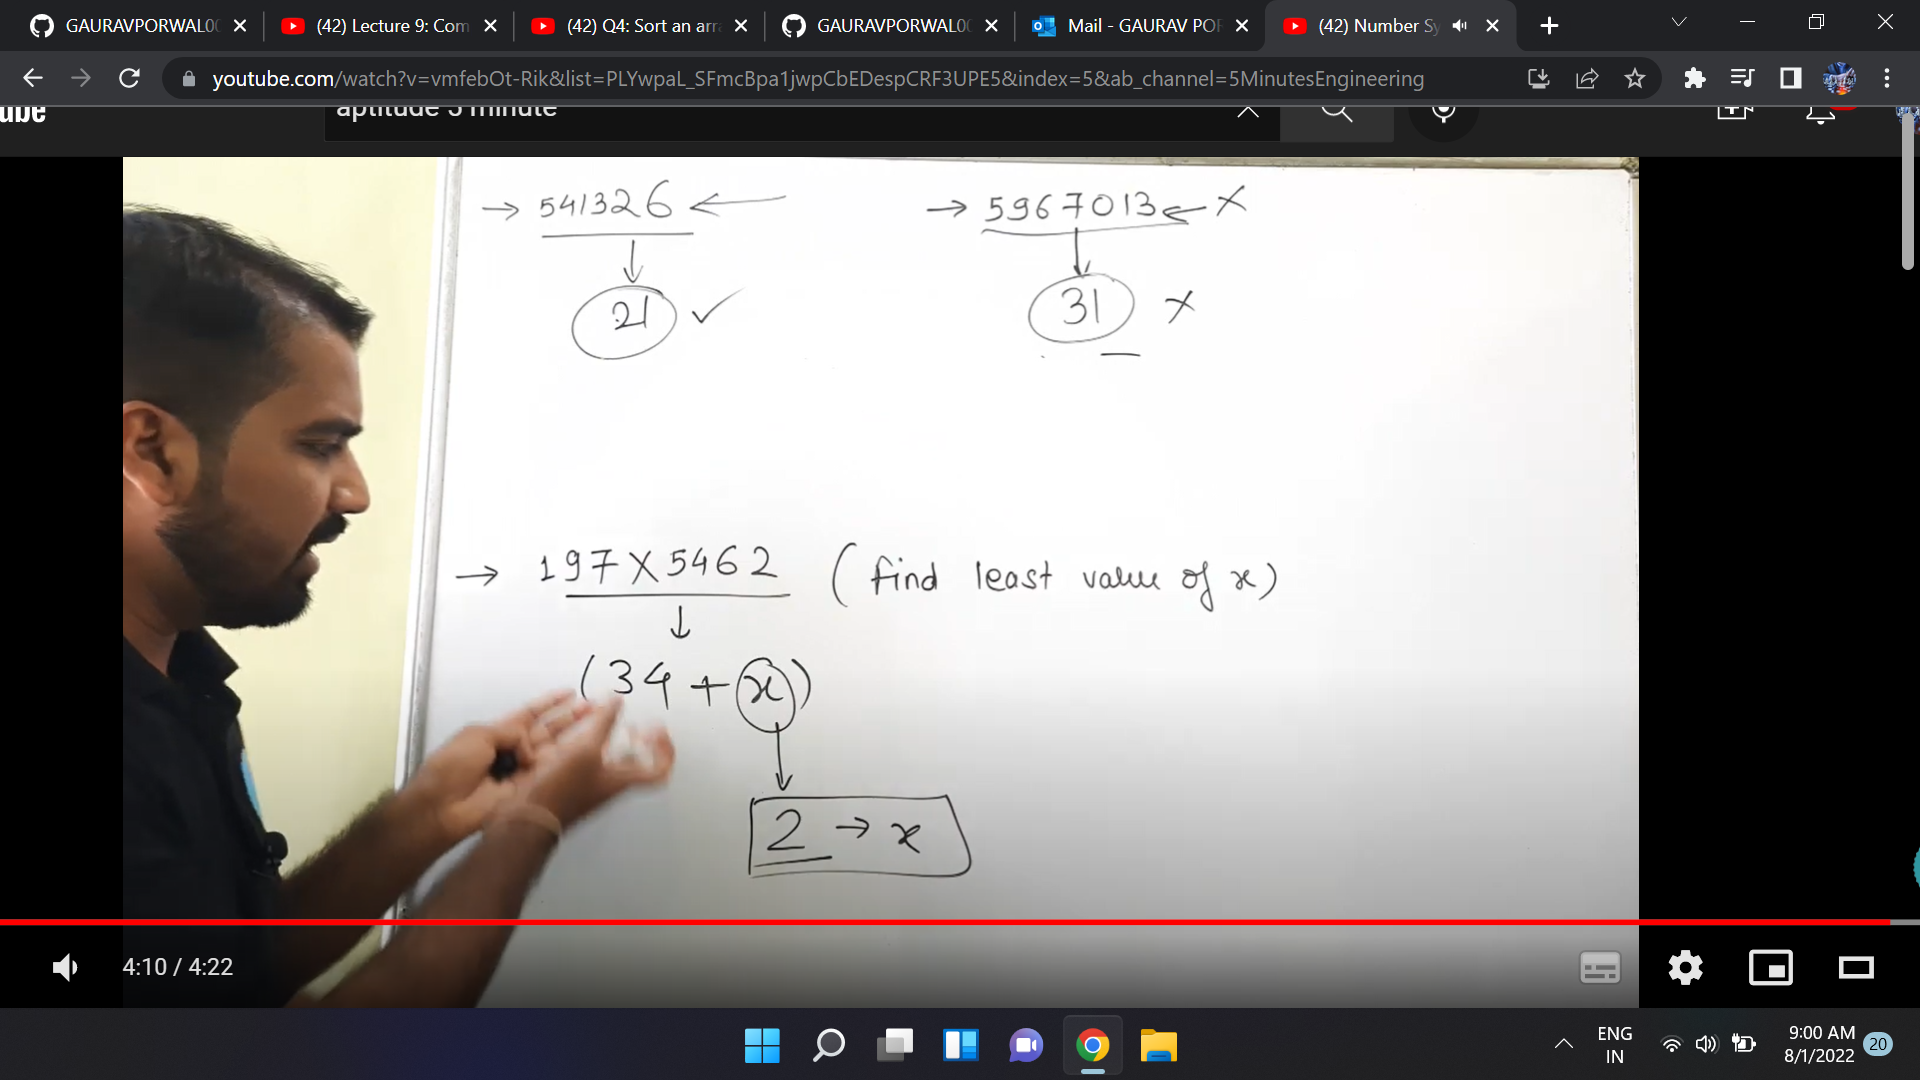 GAURAVPORWAL00 (42) Lecture 9: Com (42) Q4: Sort an arra GAURAVPORWAL00 Mail - GAURAV POR (42) Number Sy
youtube.com/watch?v=vmfebOt-Rik&list=PLYwpaL_SFmcBpa1jwpCbEDespCRF3UPE5&index=5&ab_channel=5MinutesEngineering
ube aptitude 5 minute
→ 541326 ← → 5967013 ← X
21 ✓ 31 X
→ 197X5462 (find least value of x)
(34 + x)
2 → x
4:10 / 4:22
ENG 9:00 AM
IN 8/1/2022 20